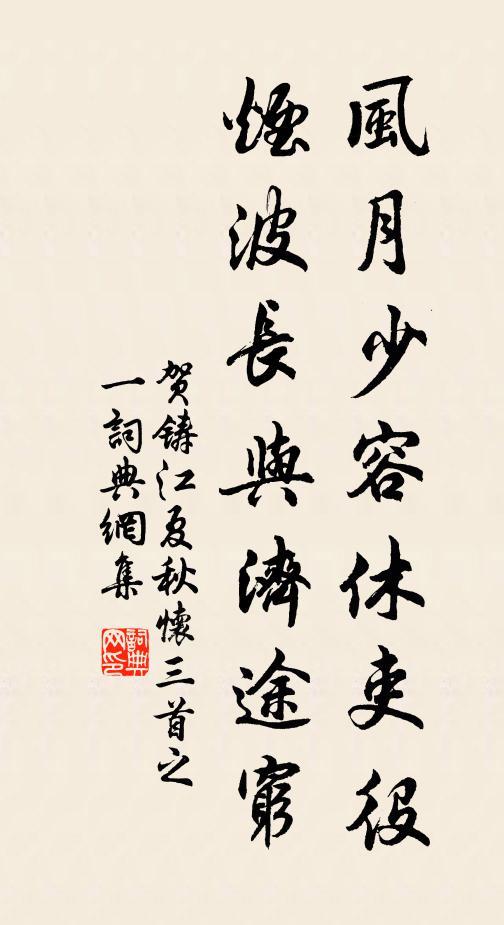 風月少容休吏役
煙波長與濟途窮
賀鑄江夏秋懷三首之
一詞典網集
詞典网印